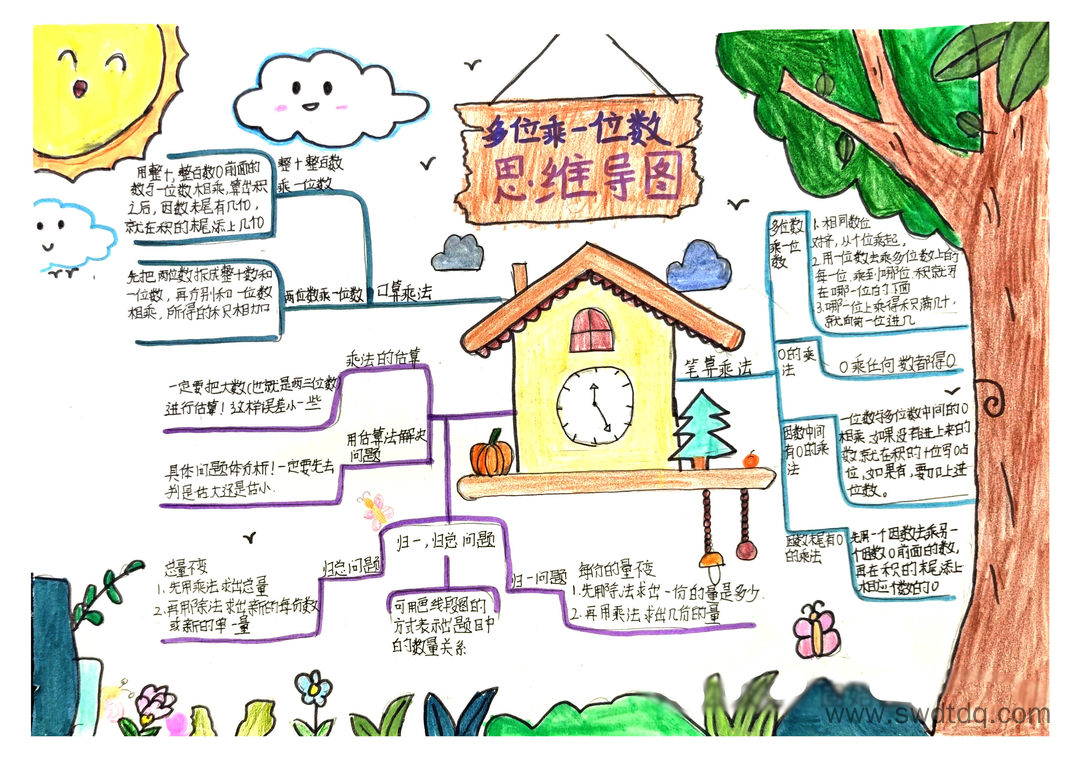 多位乘一位数
思维导图
整十整百数
乘一位数
用整十,整百数0前面的
数与一位数相乘,算出积
之后,因数末尾有几个0,
就在积的末尾添上几个0
口算乘法
两位数乘一位数
先把两位数拆成整十数和
一位数,再分别和一位数
相乘,所得的积只相加
乘法的估算
一定要把大数(也就是两三位数)
进行估算!这样误差小一些
用估算法解决
问题
具体问题具体分析!一定要先去
判定估大还是估小.
归一,归总问题
归总问题
总量不变
1.先用乘法求出总量
2.再用除法求出新的每份数
或新的单一量
可用画线段图的
方式表示出题目中
的数量关系
归一问题
每份的量不变
1.先用除法求出一份的量是多少.
2.再用乘法求出几份的量
笔算乘法
多位数
乘一位
数
1.相同数位
对齐,从个位乘起,
2.用一位数去乘多位数上的
每一位,乘到哪位积就写
在哪一位的下面
3.哪一位上乘得积满几十,
就向前一位进几
0的乘
法
0乘任何数都得0
因数中间
有0的乘
法
一位数与多位数中间的0
相乘,如果没有进上来的
数就在积的十位写0占
位,如果有,要加上进
位数。
因数末尾有0
的乘法
先用一个因数去乘另一
个因数0前面的数,
再在积的末尾添上
相应个数的0
www.swdtdq.com